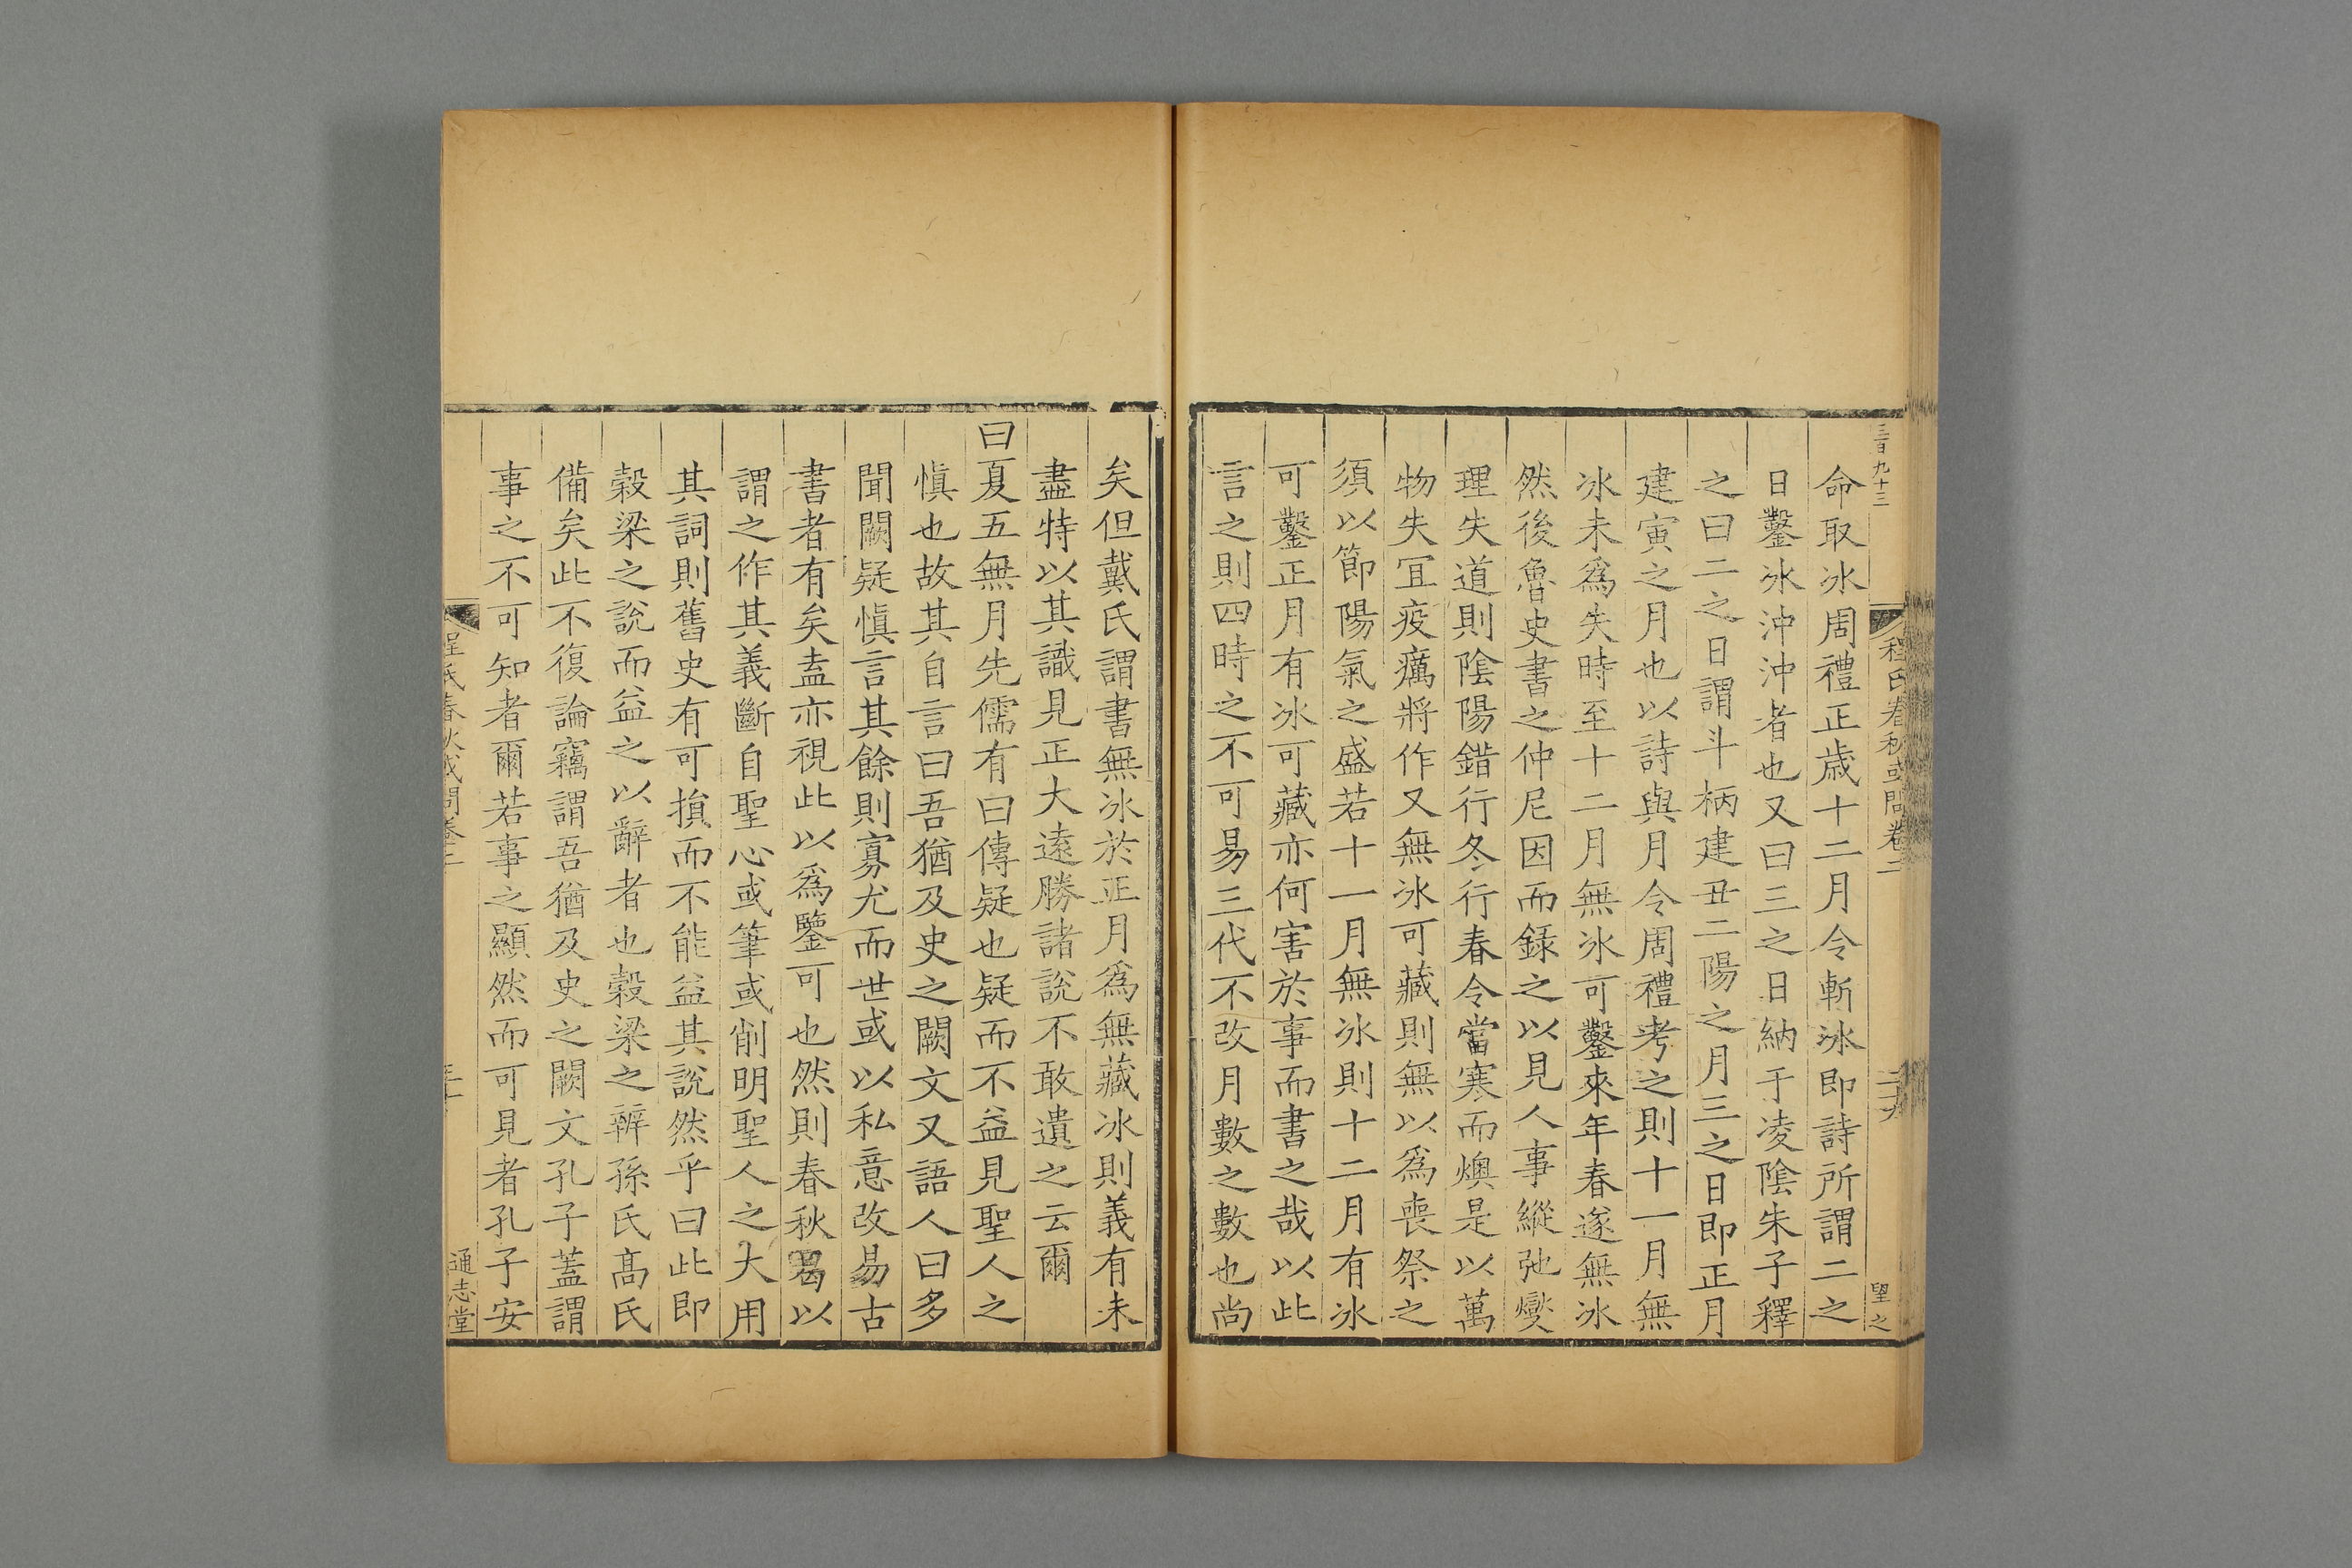 三百九十三
程氏春秋或問卷二
二十九
望之
命取冰周禮正歲十二月令斬冰即詩所謂二之
日鑿冰沖沖者也又曰三之日納于凌陰朱子釋
之曰二之日謂斗柄建丑二陽之月三之日即正月
建寅之月也以詩與月令周禮考之則十一月無
冰未爲失時至十二月無冰可鑿來年春遂無冰
然後魯史書之仲尼因而録之以見人事縱弛爕
理失道則隂陽錯行冬行春令當寒而燠是以萬
物失冝疫癘將作又無冰可藏則無以爲喪祭之
須以節陽氣之盛若十一月無冰則十二月有冰
可鑿正月有冰可藏亦何害於事而書之哉以此
言之則四時之不可易三代不改月數之數也尚
矣但戴氏謂書無冰於正月爲無藏冰則義有未
盡特以其識見正大遠勝諸說不敢遺之云爾
曰夏五無月先儒有曰傳疑也疑而不益見聖人之
愼也故其自言曰吾猶及史之闕文又語人曰多
聞闕疑愼言其餘則寡尤而世或以私意改易古
書者有矣盍亦視此以爲鑒可也然則春秋曷以
謂之作其義斷自聖心或筆或削明聖人之大用
其詞則舊史有可損而不能益其說然乎曰此即
榖梁之說而益之以辭者也榖梁之辨孫氏髙氏
備矣此不復論竊謂吾猶及史之闕文孔子蓋謂
事之不可知者爾若事之顯然而可見者孔子安
程氏春秋或問卷二
三十
通志堂